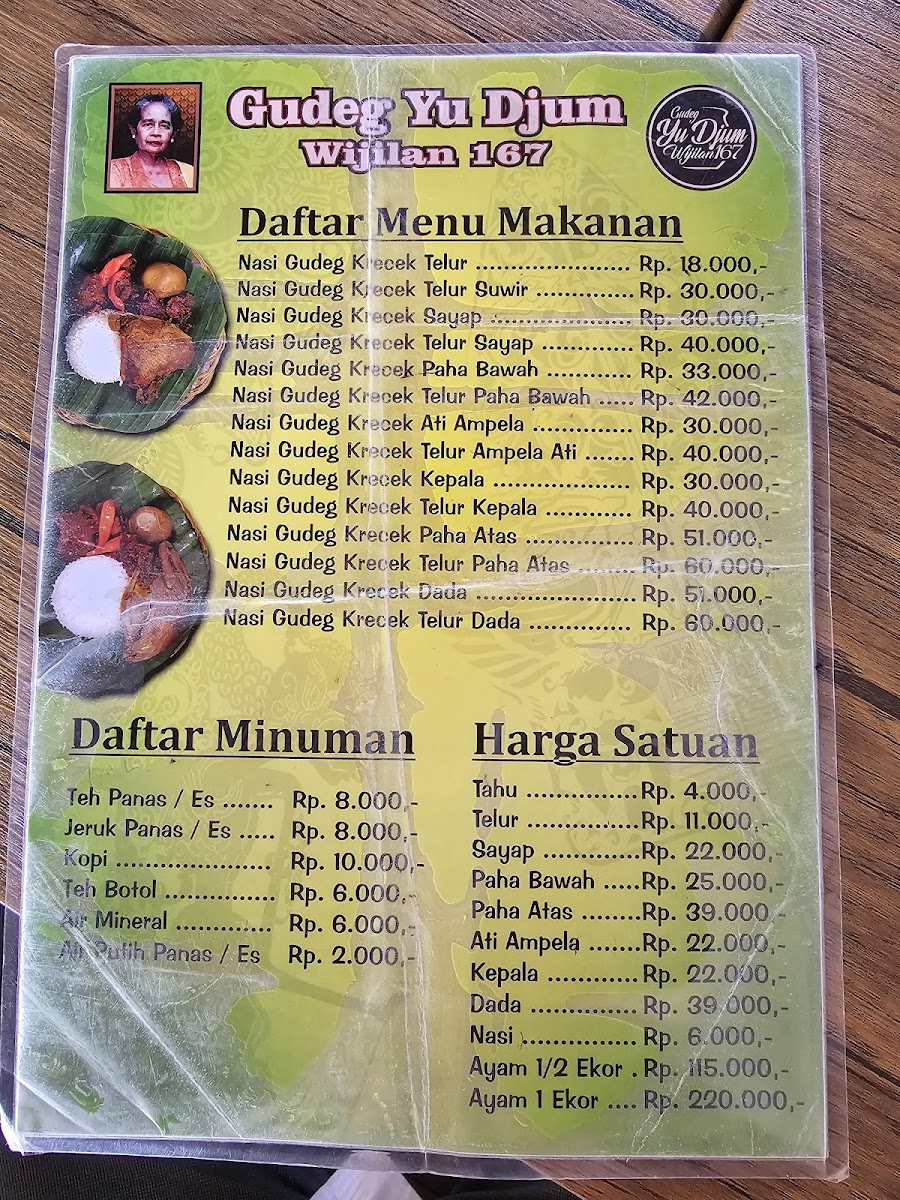 Gudeg Yu Djum
Wijilan 167
Gudeg
Yu Djum
Wijilan 167
Daftar Menu Makanan
Nasi Gudeg Krecek Telur ...................... Rp. 18.000,-
Nasi Gudeg Krecek Telur Suwir .............. Rp. 30.000,-
Nasi Gudeg Krecek Sayap .................... Rp. 30.000,-
Nasi Gudeg Krecek Telur Sayap ............. Rp. 40.000,-
Nasi Gudeg Krecek Paha Bawah ............ Rp. 33.000,-
Nasi Gudeg Krecek Telur Paha Bawah ..... Rp. 42.000,-
Nasi Gudeg Krecek Ati Ampela .............. Rp. 30.000,-
Nasi Gudeg Krecek Telur Ampela Ati ....... Rp. 40.000,-
Nasi Gudeg Krecek Kepala ................... Rp. 30.000,-
Nasi Gudeg Krecek Telur Kepala ............ Rp. 40.000,-
Nasi Gudeg Krecek Paha Atas ............... Rp. 51.000,-
Nasi Gudeg Krecek Telur Paha Atas ........ Rp. 60.000,-
Nasi Gudeg Krecek Dada ...................... Rp. 51.000,-
Nasi Gudeg Krecek Telur Dada .............. Rp. 60.000,-
Daftar Minuman
Teh Panas / Es ....... Rp. 8.000,-
Jeruk Panas / Es ..... Rp. 8.000,-
Kopi ..................... Rp. 10.000,-
Teh Botol ............... Rp. 6.000,-
Air Mineral ............. Rp. 6.000,-
Air Putih Panas / Es Rp. 2.000,-
Harga Satuan
Tahu ................Rp. 4.000,-
Telur ................Rp. 11.000,-
Sayap ..............Rp. 22.000,-
Paha Bawah .....Rp. 25.000,-
Paha Atas ........Rp. 39.000,-
Ati Ampela .......Rp. 22.000,-
Kepala .............Rp. 22.000,-
Dada ...............Rp. 39.000,-
Nasi ................Rp. 6.000,-
Ayam 1/2 Ekor . Rp. 115.000,-
Ayam 1 Ekor .... Rp. 220.000,-